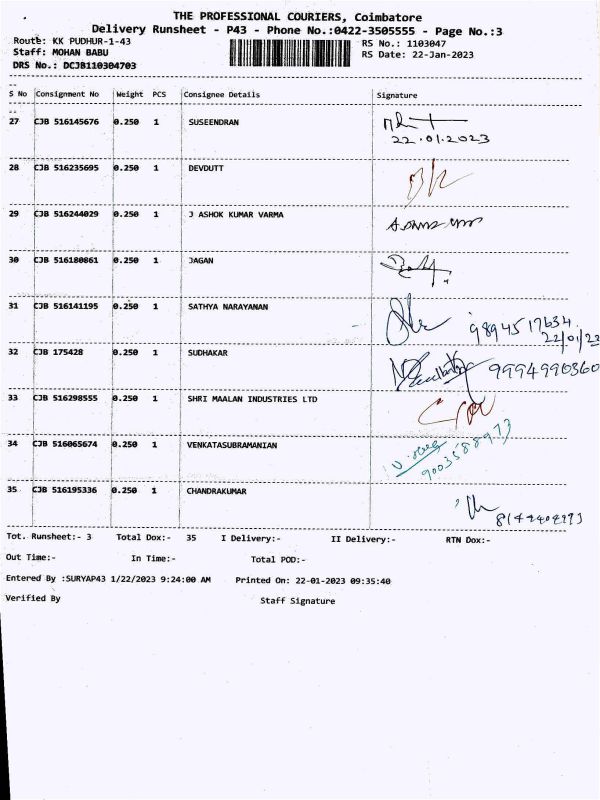 THE PROFESSIONAL COURIERS, Coimbatore
Delivery Runsheet - P43 - Phone No.:0422-3505555 - Page No.:3
Route: KK PUDHUR-1-43 RS No.: 1103047
Staff: MOHAN BABU RS Date: 22-Jan-2023
DRS No.: DCJB110304703
S No Consignment No Weight PCS Consignee Details Signature
27 CJB 516145676 0.250 1 SUSEENDRAN
22.01.2023
28 CJB 516235695 0.250 1 DEVDUTT
29 CJB 516244029 0.250 1 J ASHOK KUMAR VARMA
30 CJB 516180861 0.250 1 JAGAN
31 CJB 516141195 0.250 1 SATHYA NARAYANAN 9894517634
22/01/23
32 CJB 175428 0.250 1 SUDHAKAR 9994990360
33 CJB 516298555 0.250 1 SHRI MAALAN INDUSTRIES LTD
34 CJB 516065674 0.250 1 VENKATASUBRAMANIAN 9003588973
35 CJB 516195336 0.250 1 CHANDRAKUMAR
Tot. Runsheet:- 3 Total Dox:- 35 I Delivery:- II Delivery:- RTN Dox:-
Out Time:- In Time:- Total POD:-
Entered By :SURYAP43 1/22/2023 9:24:00 AM Printed On: 22-01-2023 09:35:40
Verified By Staff Signature